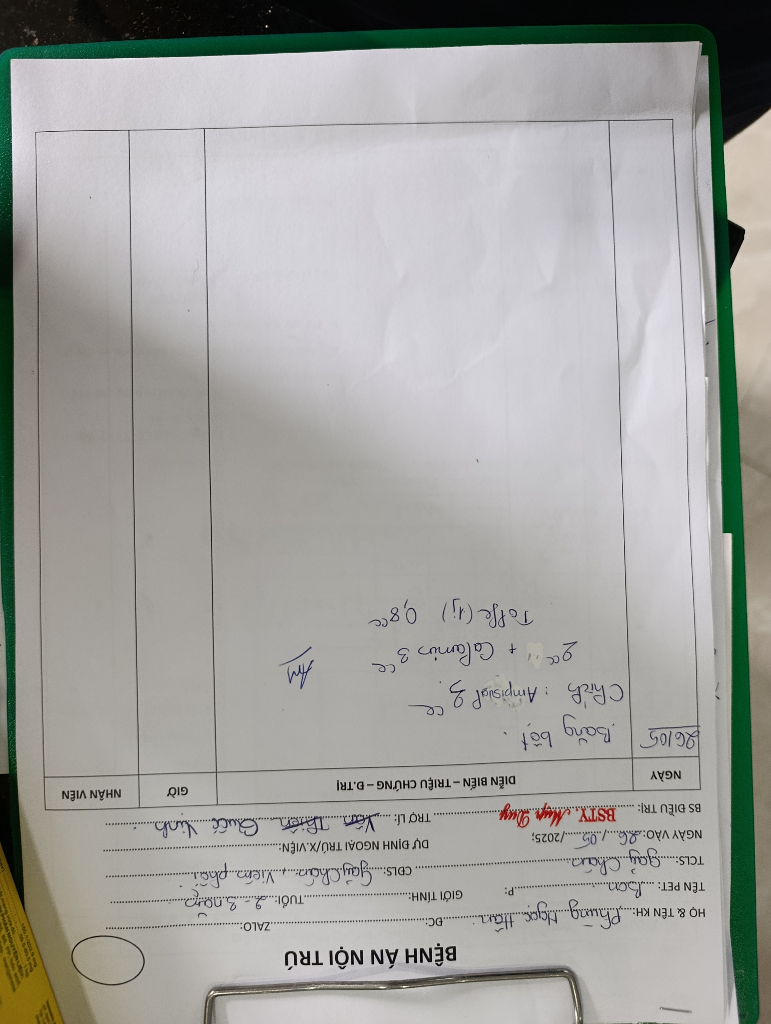 BỆNH ÁN NỘI TRÚ
HỌ & TÊN KH: Phùng Ngọc Hân ĐC: ZALO:
TÊN PET: Bon P: GIỚI TÍNH: TUỔI: 2-3 năm
TCLS: Gãy chân CĐLS: Gãy chân, viêm phổi
NGÀY VÀO: 26/05/2025; DỰ ĐỊNH NGOẠI TRÚ/X.VIỆN:
BS ĐIỀU TRỊ: BSTY. Duy TRỢ LÍ: Quốc Vinh
NGÀY DIỄN BIẾN – TRIỆU CHỨNG – Đ.TRỊ GIỜ NHÂN VIÊN
26/05 Băng bột.
Chích: Ampisul 2cc
2cc + Catamin 3cc AM
Tolfe (1j) 0,8cc